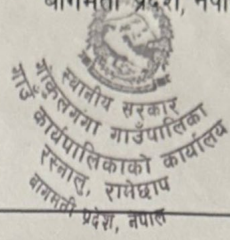 बागमती प्रदेश, नेपा
स्थानीय सरकार
गोकुलगंगा गाउँपालिका
गाउँ कार्यपालिकाको कार्यालय
रस्नालु, रामेछाप
बागमती प्रदेश, नेपाल